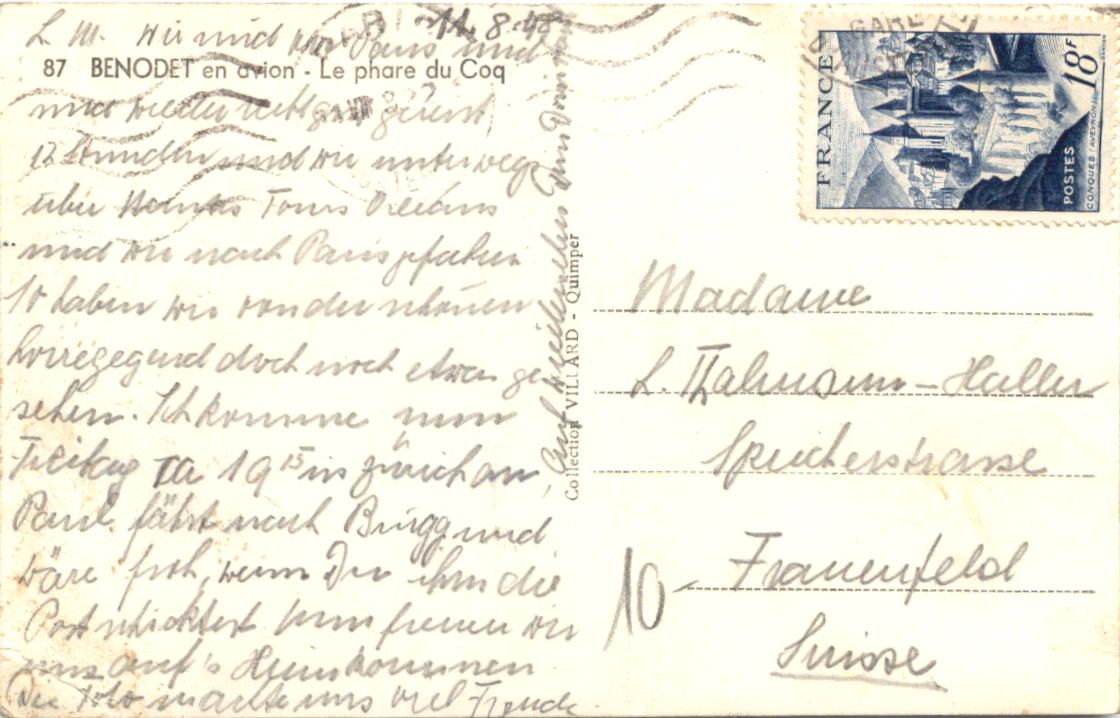 11. 8. 48
L. M. Wir sind von Paris und
87 BENODET en avion - Le phare du Coq
nun wieder
12 Stunden sind wir unterwegs
über Tours Orléans
sind wir nach Paris gefahren
So haben wir von der schönen
Loiregegend doch noch etwas ge
sehen. Ich komme nun
Freitag 19 15 in Zürich an,
Paul fährt nach Brugg und
wäre froh, wenn Du ihm die
Post schicktest. Nun freuen wir
uns auf's Heimkommen.
Die Foto machte uns viel Freude.
Auf Wiedersehen
Collection VILLARD - Quimper
FRANCE
18F
POSTES
CONQUES (AVEYRON)
GARE
Madame
L. Thalmann-Haller
Speicherstrasse
10
Frauenfeld
Suisse